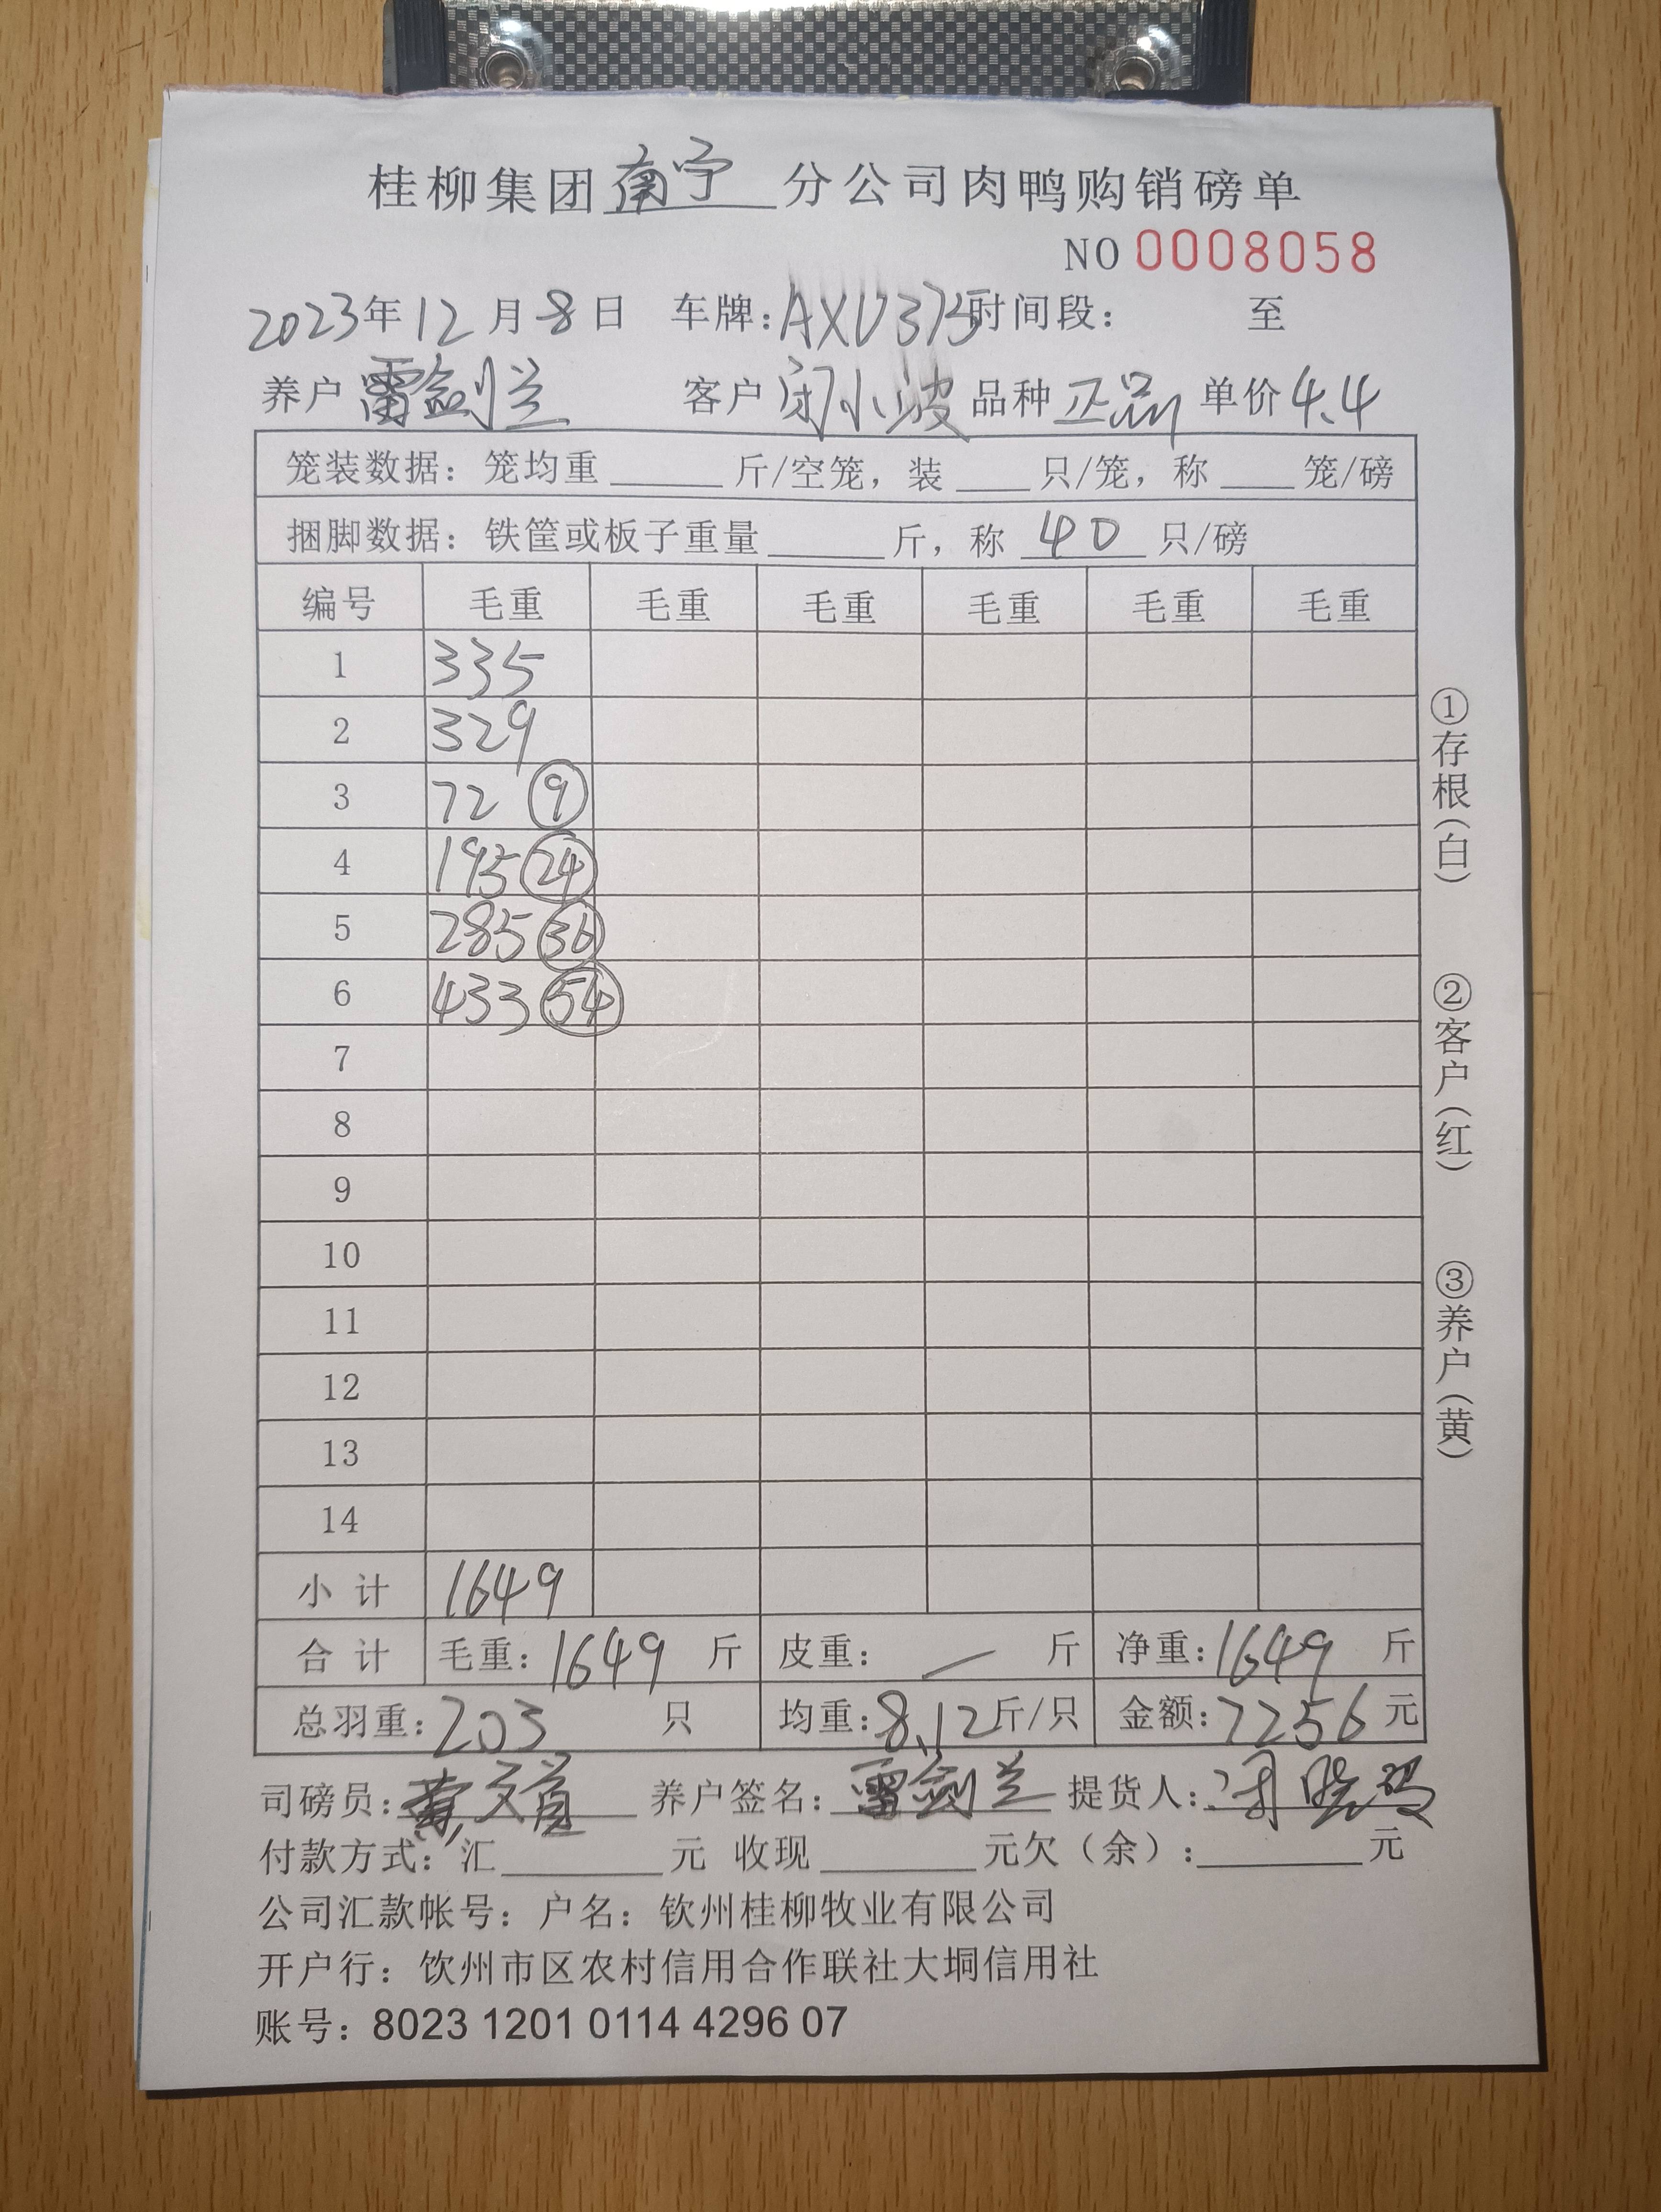 桂柳集团南宁分公司肉鸭购销磅单
NO 0008058
2023年12月8日 车牌:AXU375时间段: 至
养户 雷剑兰 客户 闭小波 品种 正品 单价 4.4
笼装数据: 笼均重____斤/空笼, 装____只/笼, 称____笼/磅
捆脚数据: 铁筐或板子重量____斤, 称 40 只/磅
编号 毛重 毛重 毛重 毛重 毛重 毛重
1 335
2 329
3 72 ⑨
4 195 ㉔
5 285 ㊱
6 433 54
7
8
9
10
11
12
13
14
小计 1649
合计 毛重: 1649 斤 皮重: — 斤 净重: 1649 斤
总羽重: 203 只 均重: 8.12斤/只 金额: 7256元
司磅员: 黄 养户签名: 雷剑兰 提货人: 闭
付款方式: 汇____元 收现____元欠(余):____元
公司汇款帐号: 户名: 钦州桂柳牧业有限公司
开户行: 饮州市区农村信用合作联社大垌信用社
账号: 8023 1201 0114 4296 07
①存根(白)
②客户(红)
③养户(黄)